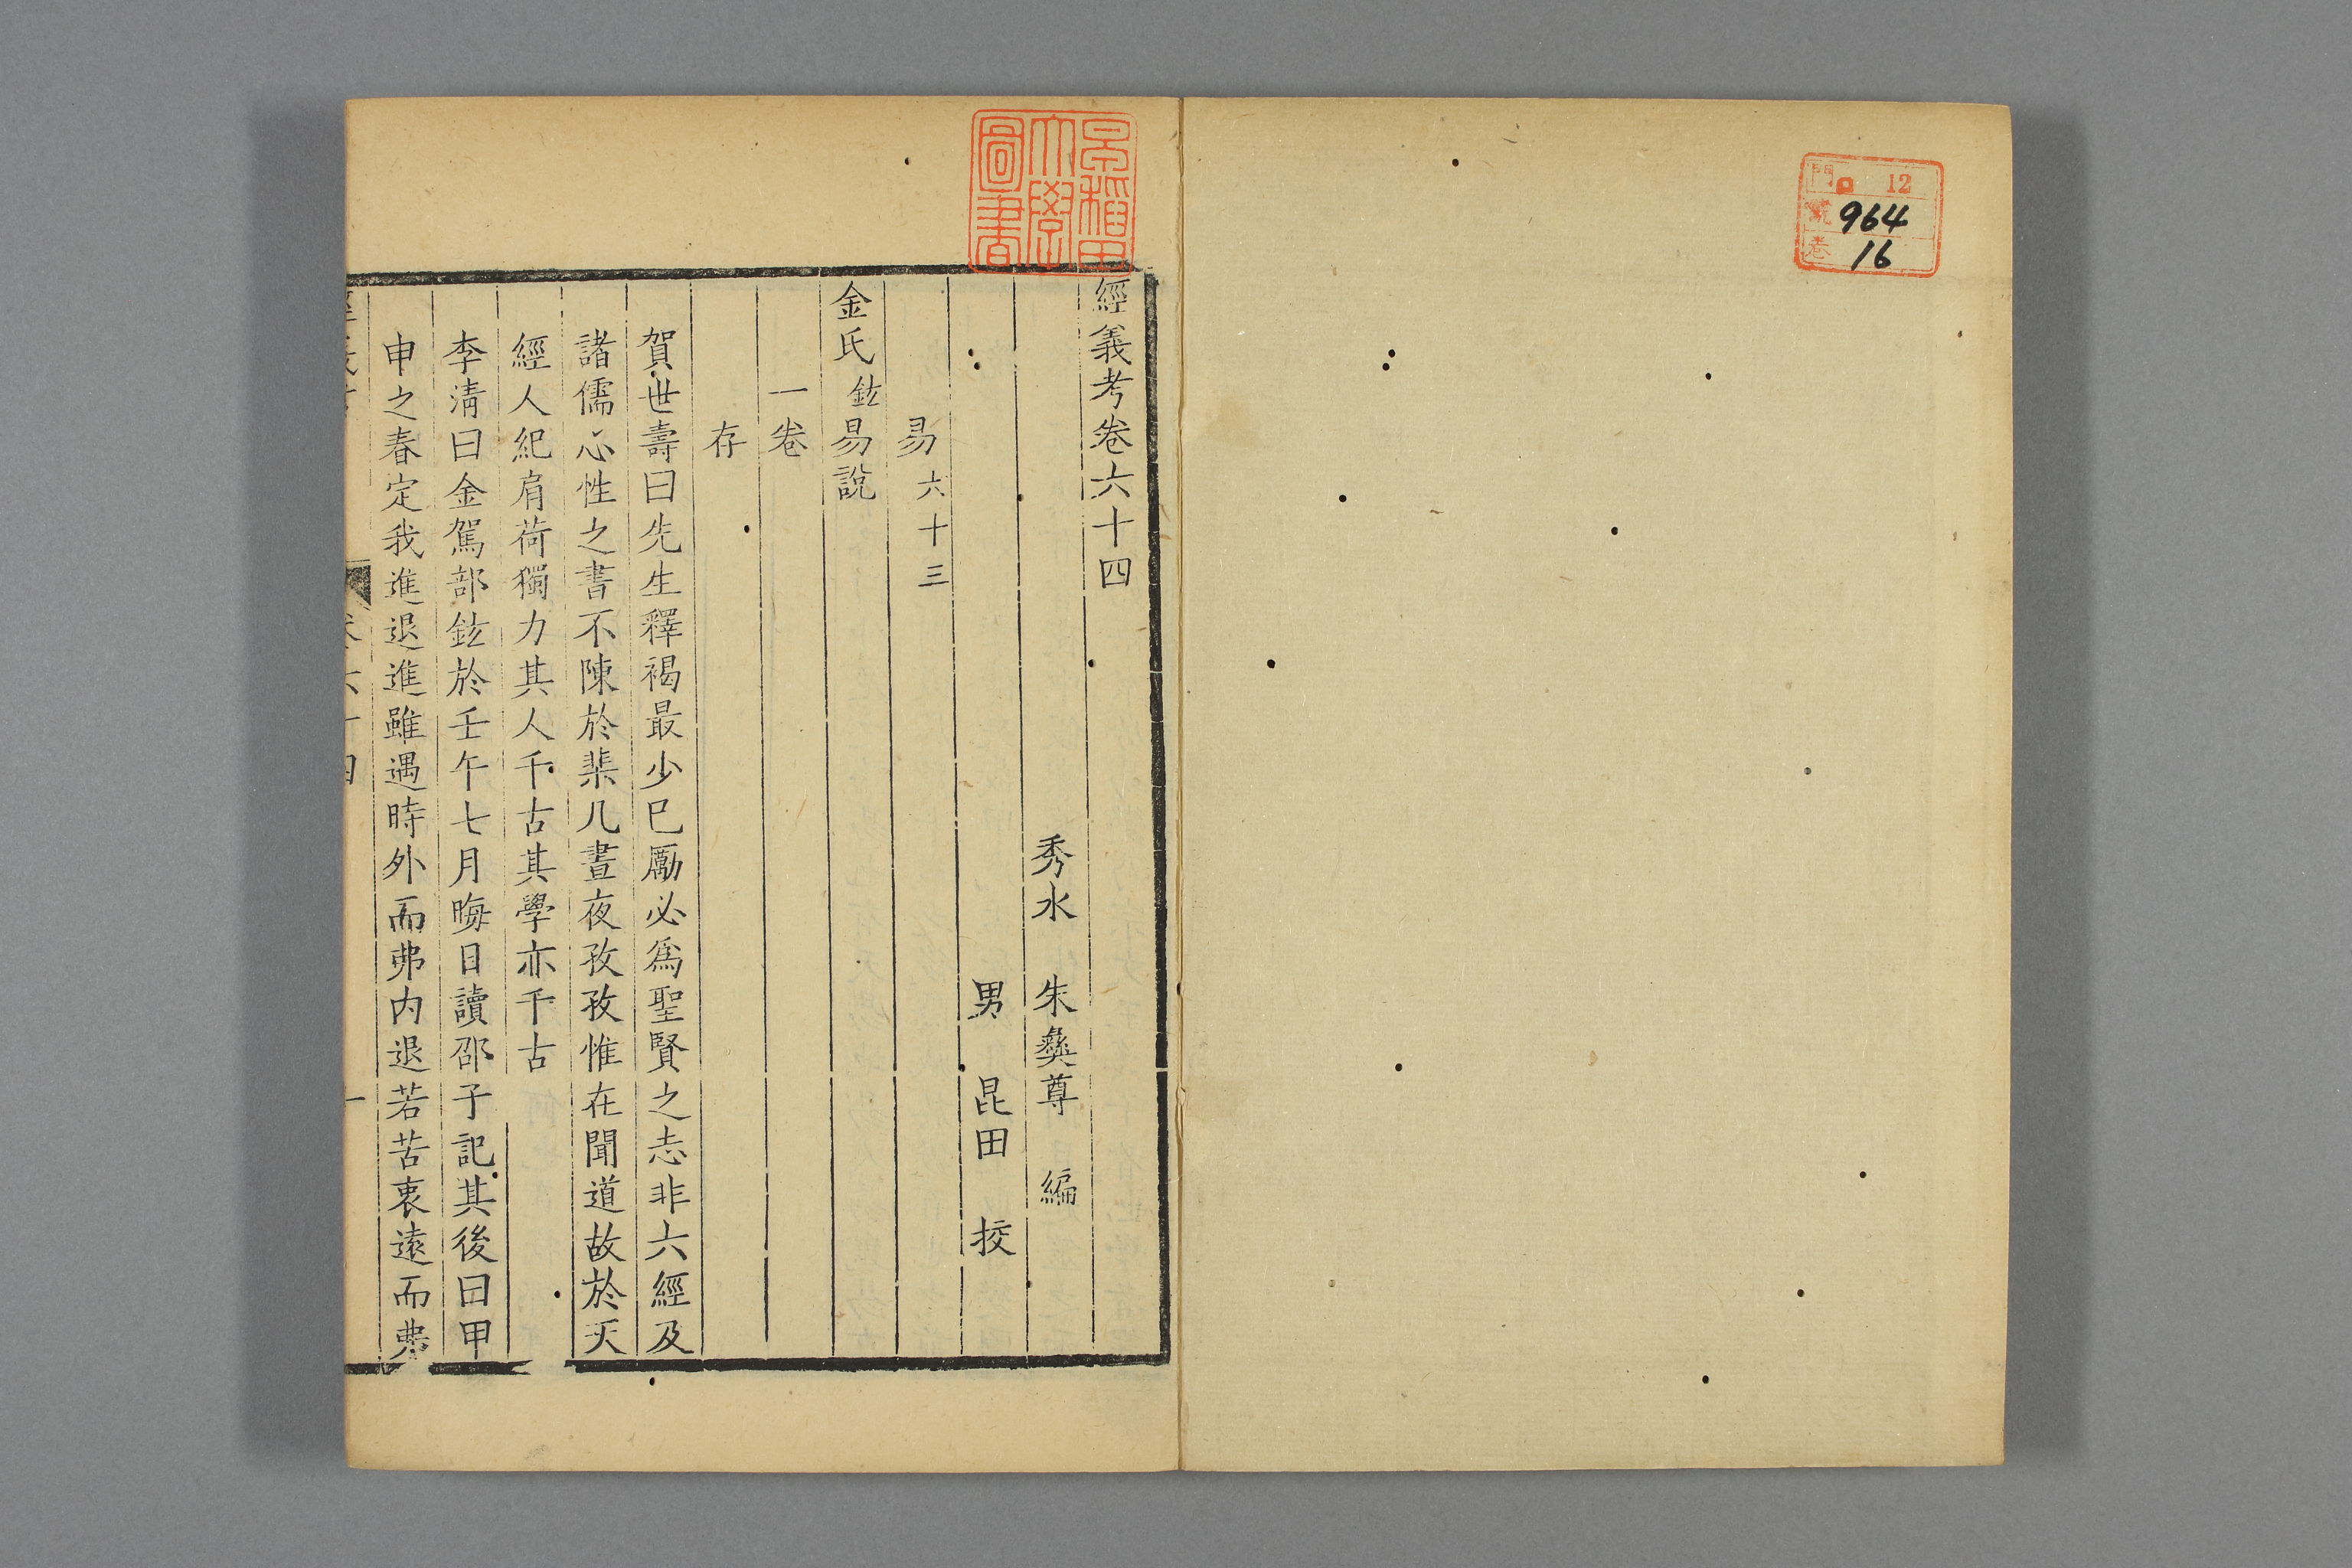 門 12
號 964
卷 16
早稲田
大學
圖書
經義考卷六十四
秀水 朱彝尊 編
男 昆田 挍
易六十三
金氏鉉易說
一卷
存
賀世壽曰先生釋褐最少巳勵必爲聖賢之志非六經及
諸儒心性之書不陳於棐几晝夜孜孜惟在聞道故於天
經人紀肩荷獨力其人千古其學亦千古
李清曰金駕部鉉於壬午七月晦日讀邵子記其後曰甲
申之春定我進退進雖遇時外而弗内退若苦衷遠而弗
卷六十四 一